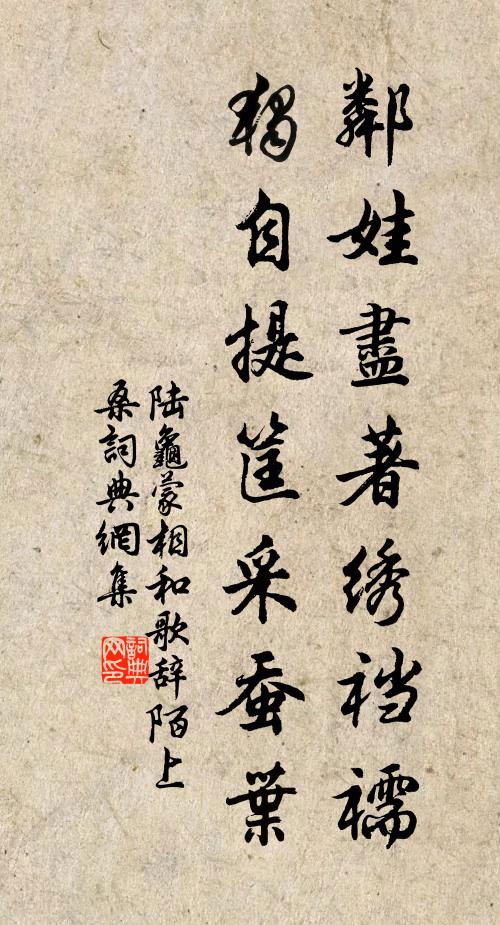 鄰娃盡著绣襠襦
獨自提筐采蚕葉
陆龜蒙相和歌辞陌上
桑詞典網集
詞典
网印